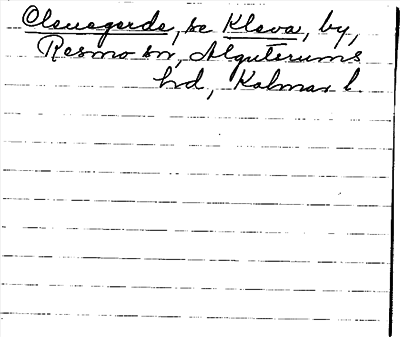 Olsuegarde, se Kleva, by,
Resmo sn, Algutsrums
hd, Kalmar l.